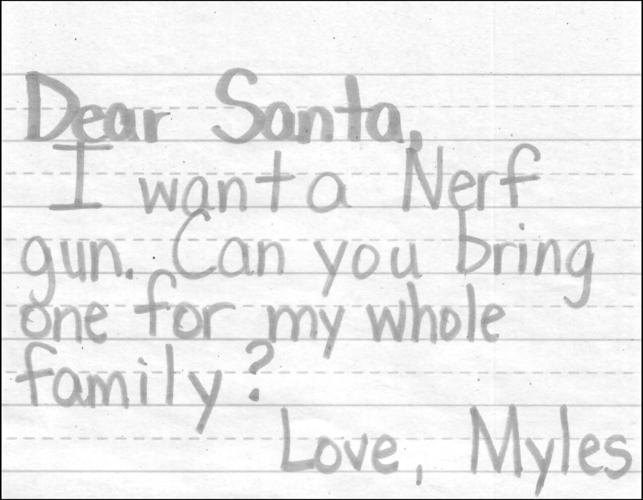 Dear Santa,
I want a Nerf
gun. Can you bring
one for my whole
family?
Love, Myles